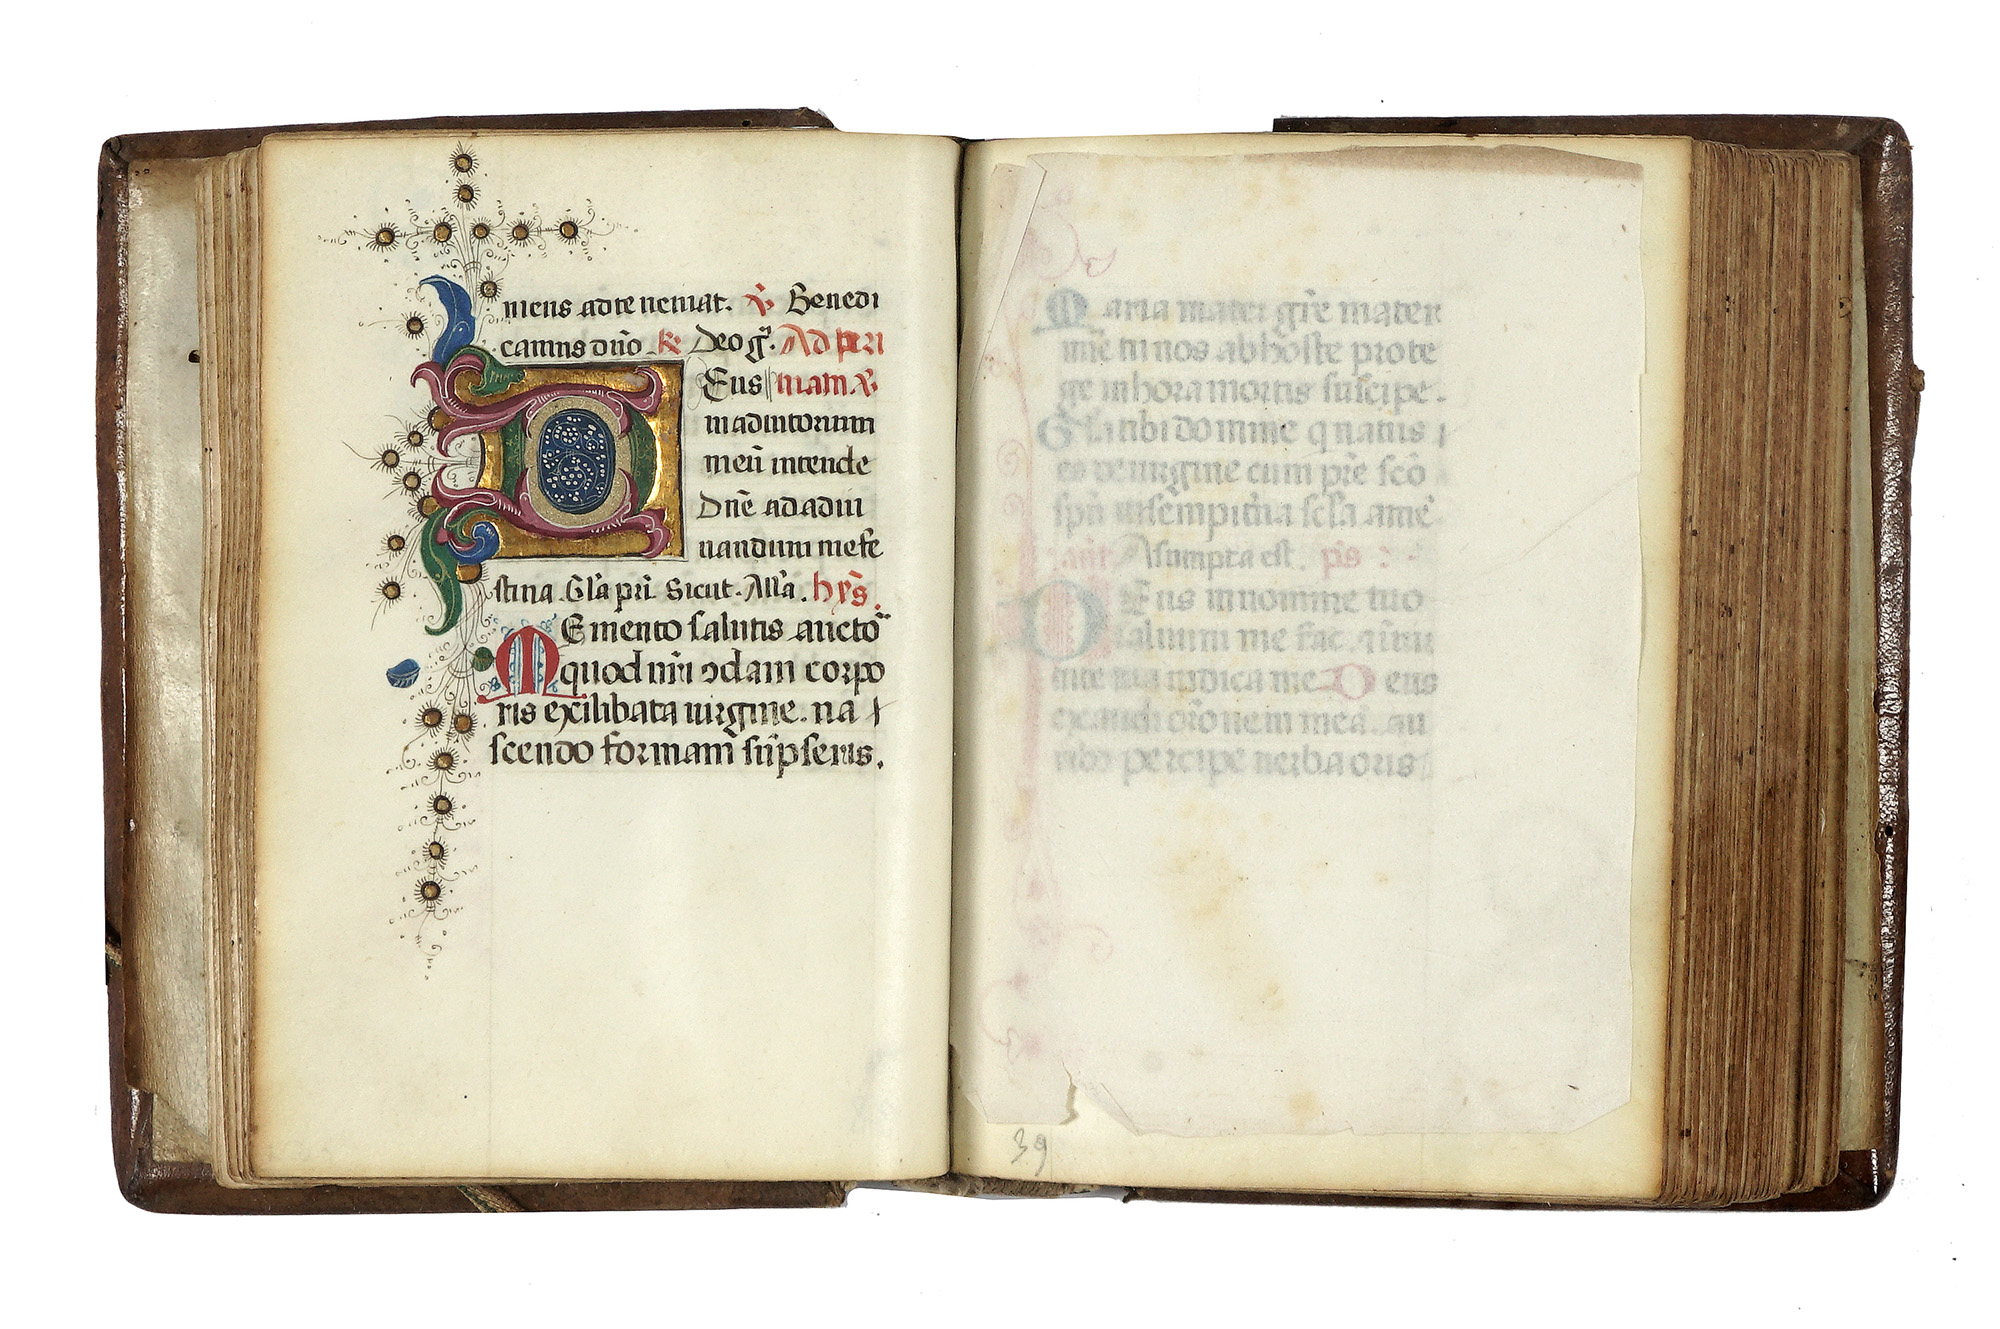 mens ad te veniat. ℣. Benedi
camus dño ℟. Deo gr̃. Ad pri
Eus mam ℣.
in adiutorium
meũ intende
Dñe ad adiu
uandum me fe
stina. Gľa pri. Sicut. Alľa. hys̃.
M Emento salutis aucto
quod nr̃i ꝯdam corpo
ris ex illibata uirgine. na
scendo formam sũpseris.
M aria mater gr̃e mater
mĩe tu nos ab hoste prote
ge in hora mortis suscipe.
Gľa tibi domine q natus
es de uirgine cum pr̃e sc̃o
spũ in sempitr̃na sc̃la amẽ
ant̃ Asumpta est. ps̃
D Eus in nomine tuo
saluum me fac. &
tute tua iudica me. D eus
exaudi orõnem meã. au
ribꝫ percipe uerba oris
39